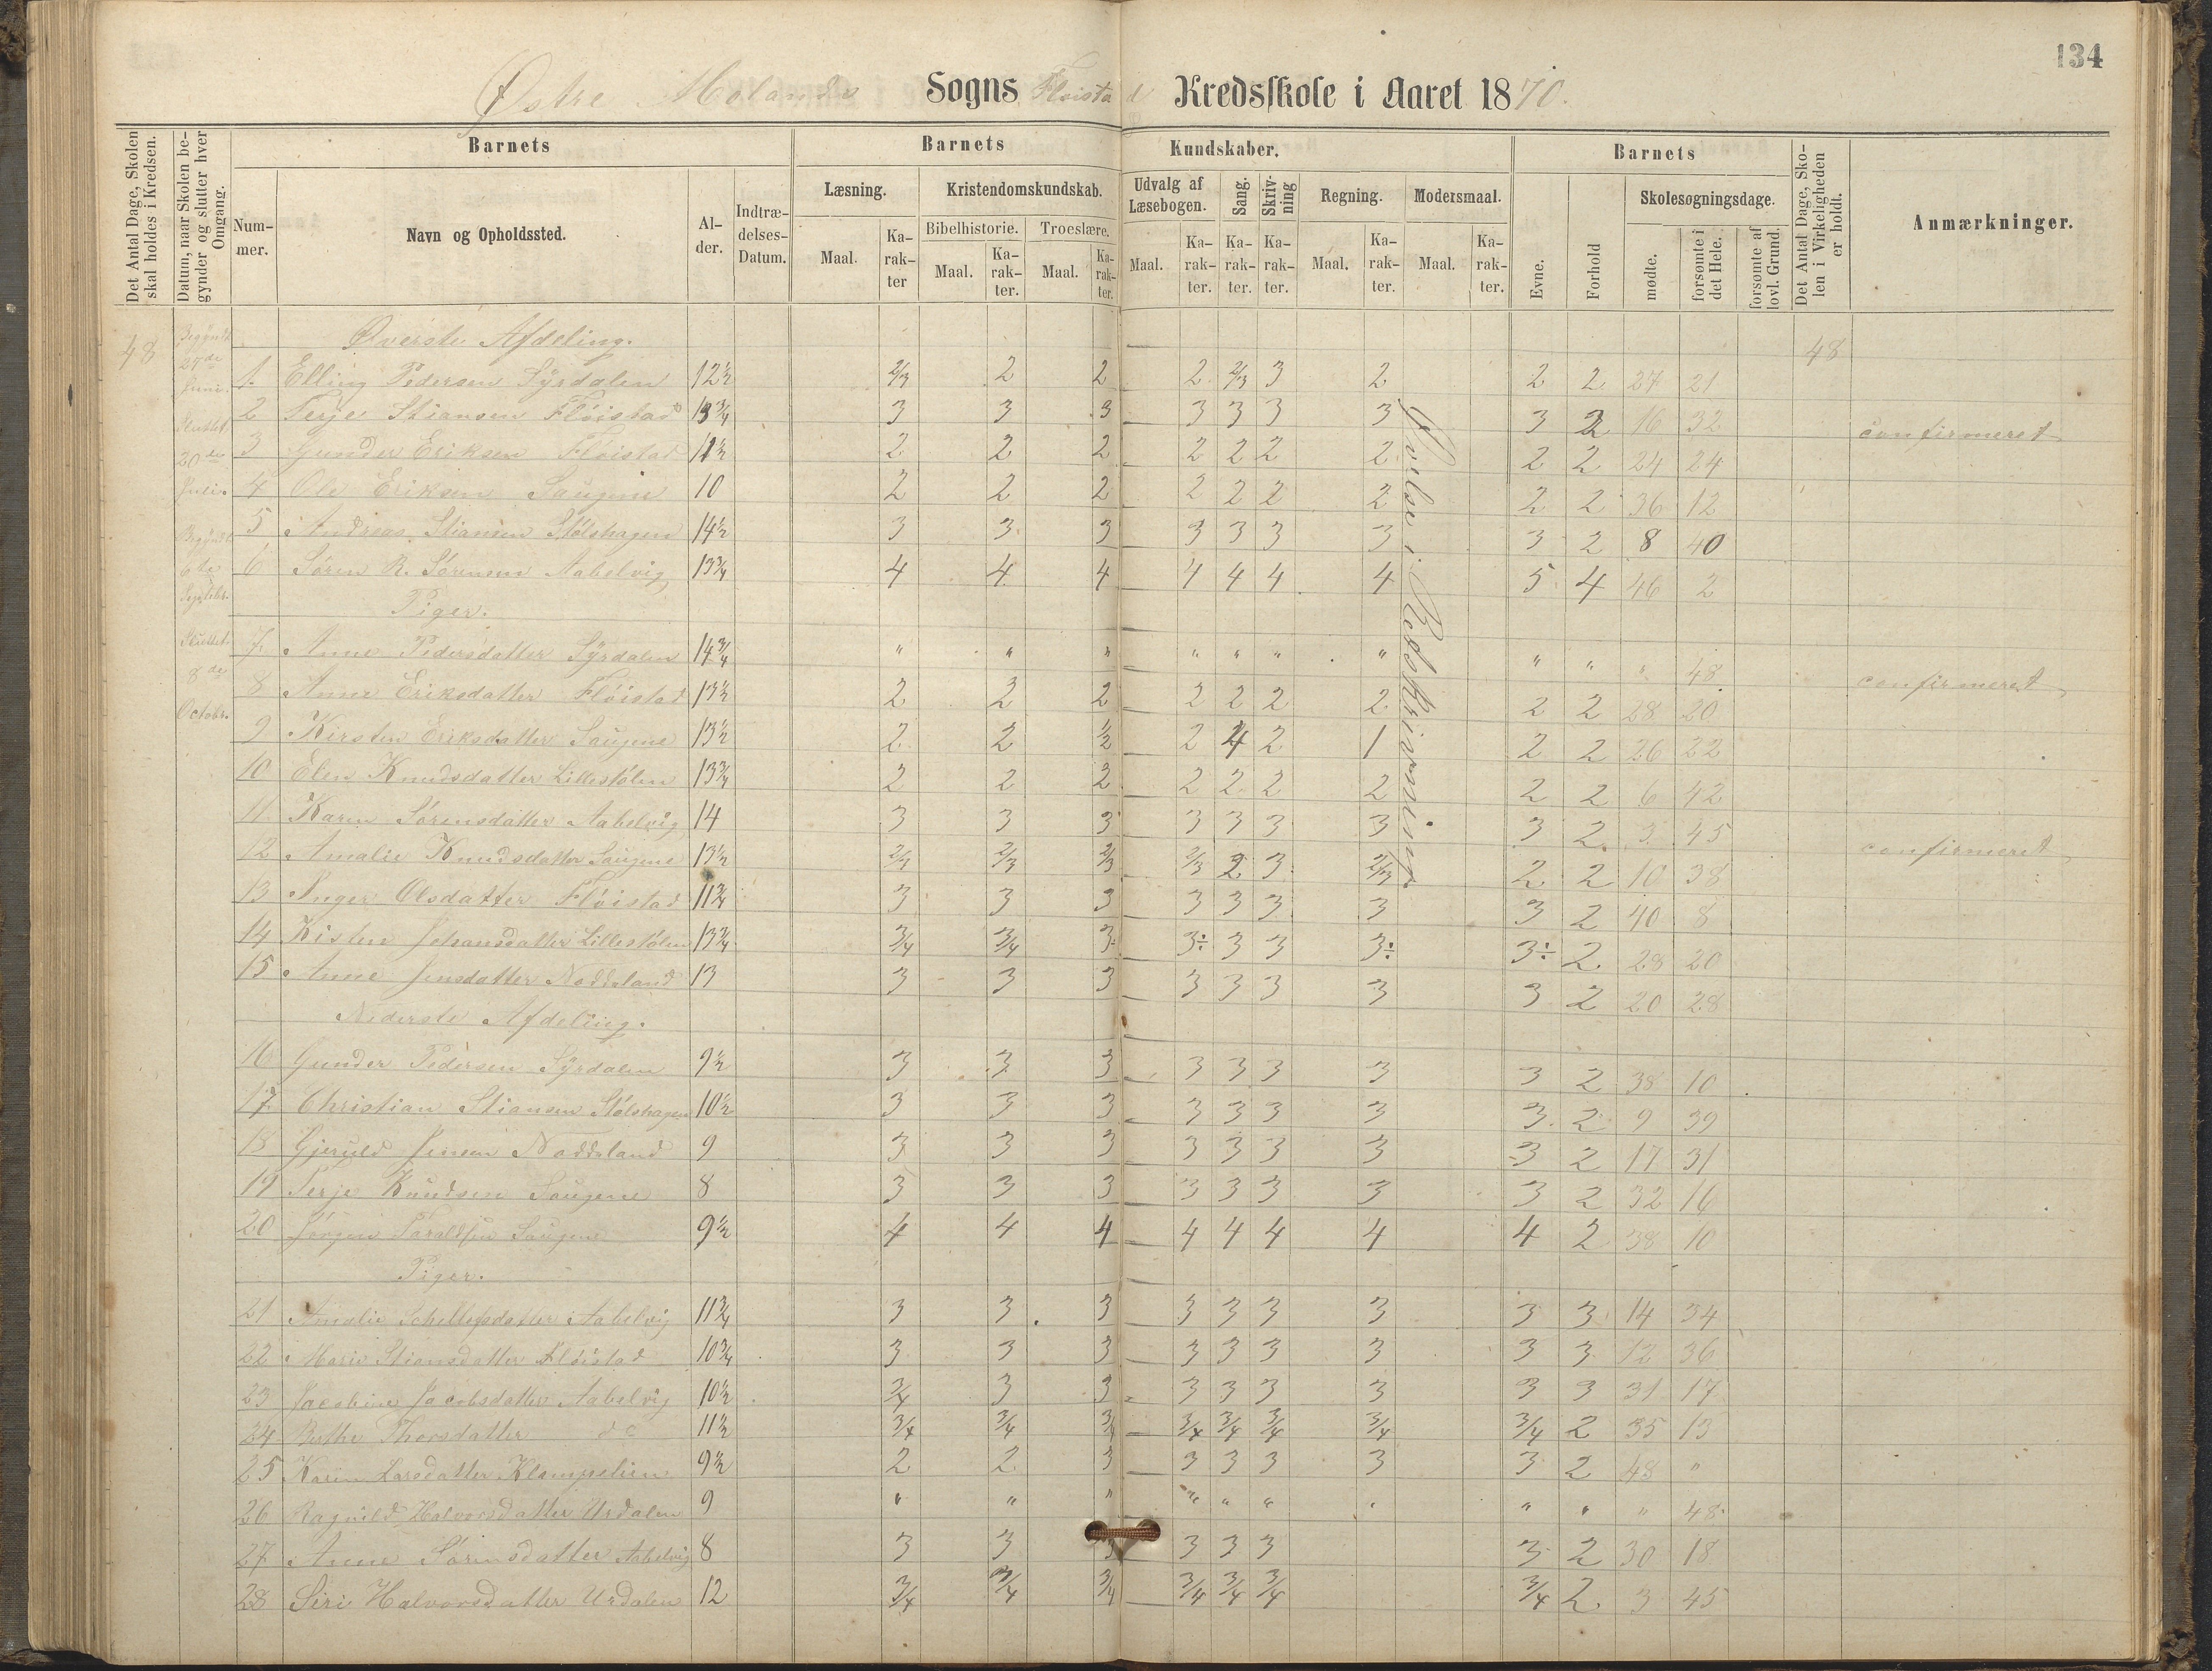 134
Østre Molands Sogns Fløistad Kredsskole i Aaret 1870.
Det Antal Dage, Skolen skal holdes i Kredsen.
Datum, naar Skolen begynder og slutter hver Omgang.
Barnets
Barnets
Kundskaber.
Barnets
Det Antal Dage, Skolen i Virkeligheden er holdt.
Anmærkninger.
Nummer.
Navn og Opholdssted.
Alder.
Indtrædelses-Datum.
Læsning.
Kristendomskundskab.
Udvalg af Læsebogen.
Sang.
Skrivning
Regning.
Modersmaal.
Evne.
Forhold
Skolesøgningsdage.
Bibelhistorie.
Troeslære.
Maal.
Karakter
Maal.
Karakter.
Maal.
Karakter.
Maal.
Karakter.
Karakter.
Karakter.
Maal.
Karakter.
Maal.
Karakter.
mødte.
forsømte i det Hele.
forsømte af lovl. Grund.
48
Begyndt 27de Juni.
Sluttet 20de Juli.
Begyndt 6te Septbr.
Sluttet 8de Octobr.
Øvelse i Retskrivning.
Øverste Afdeling. 48
1. Elling Pedersen Syrdalen 12½ 2/3 2 2 2 2/3 3 2 2 2 27 21
2 Terje Stiansen Fløistad 13¾ 3 3 3 3 3 3 3 3 2 16 32 confirmeret
3 Gunder Eriksen Fløistad 11½ 2 2 2 2 2 2 2 2 2 24 24
4 Ole Eriksen Saugene 10 2 2 2 2 2 2 2 2 2 36 12
5 Andreas Stiansen Stølshagen 14½ 3 3 3 3 3 3 3 3 2 8 40
6 Søren R. Sørensen Aabelvig 13¾ 4 4 4 4 4 4 4 5 4 46 2
Piger.
7 Anne Pedersdatter Syrdalen 14¾ " " " " " " " " " " 48 confirmeret
8 Anne Eriksdatter Fløistad 13½ 2 2 2 2 2 2 2 2 2 28 20
9 Kirsten Eriksdatter Saugene 13½ 2 2 ½ 2 4 2 1 2 2 26 22
10 Elen Knudsdatter Lillestølen 13¾ 2 2 2 2 2 2 2 2 2 6 42
11 Karen Sørensdatter Aabelvig 14 3 3 3 3 3 3 3 3 2 3 45
12 Amalie Knudsdatter Saugene 13½ 2/3 2/3 2/3 2/3 2 3 2/3 2 2 10 38 confirmeret
13 Inger Olsdatter Fløistad 11¾ 3 3 3 3 3 3 3 3 2 40 8
14 Kisten Johansdatter Lillestølen 13¾ 3/4 3/4 3÷ 3÷ 3 3 3÷ 3÷ 2 28 20
15 Anne Jensdatter Noddeland 13 3 3 3 3 3 3 3 3 2 20 28
Nederste Afdeling.
16 Gunder Pedersen Syrdalen 9½ 3 3 3 3 3 3 3 3 2 38 10
17 Christian Stiansen Stølshagen 10½ 3 3 3 3 3 3 3 3 2 9 39
18 Gjeruld Jensen Noddeland 9 3 3 3 3 3 3 3 3 2 17 31
19 Terje Knudsen Saugene 8 3 3 3 3 3 3 3 3 2 32 16
20 Jørgen Taraldsen Saugene 9½ 4 4 4 4 4 4 4 4 2 38 10
Piger.
21 Amalie Schellefsdatter Aabelvig 11¾ 3 3 3 3 3 3 3 3 3 14 34
22 Marie Stiansdatter Fløistad 10¾ 3 3 3 3 3 3 3 3 3 12 36
23 Jacobine Jacobsdatter Aabelvig 10½ 3/4 3 3 3 3 3 3 3 3 31 17
24 Berthe Thorsdatter do 11½ 3/4 3/4 3/4 3/4 3/4 3/4 3/4 3/4 2 35 13
25 Karen Larsdatter Klompelien 9½ 2 2 3 3 3 3 3 3 2 48 "
26 Ragnild Halvorsdatter Urdalen 9 " " " " " " " " " " 48
27 Anne Sørensdatter Aabelvig 8 3 3 3 3 3 3 3 2 30 18
28 Siri Halvorsdatter Urdalen 12 3/4 3/4 3/4 3/4 3/4 3/4 3/4 2 3 45